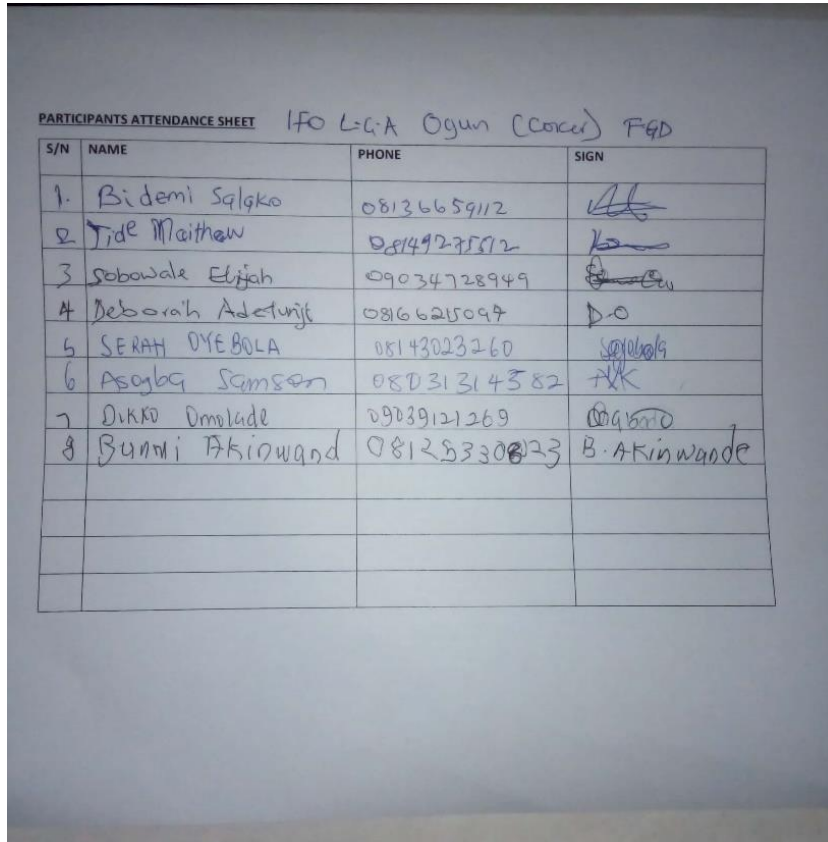 PARTICIPANTS ATTENDANCE SHEET IFO L.G.A Ogun FGD
S/N NAME PHONE SIGN
1. Bidemi Salako 08136659112
2 Jide Maithew 08149275512
3 Sobowale Elijah 09034728949
4 Deborah Adetunji 08166215097 D.O
5 SERAH OYEBOLA 08143023260
6 Asogba Samson 08031314582
7 Dikko Omolade 09039121269
8 Bunmi Akinwand 08125330823 B. Akinwande